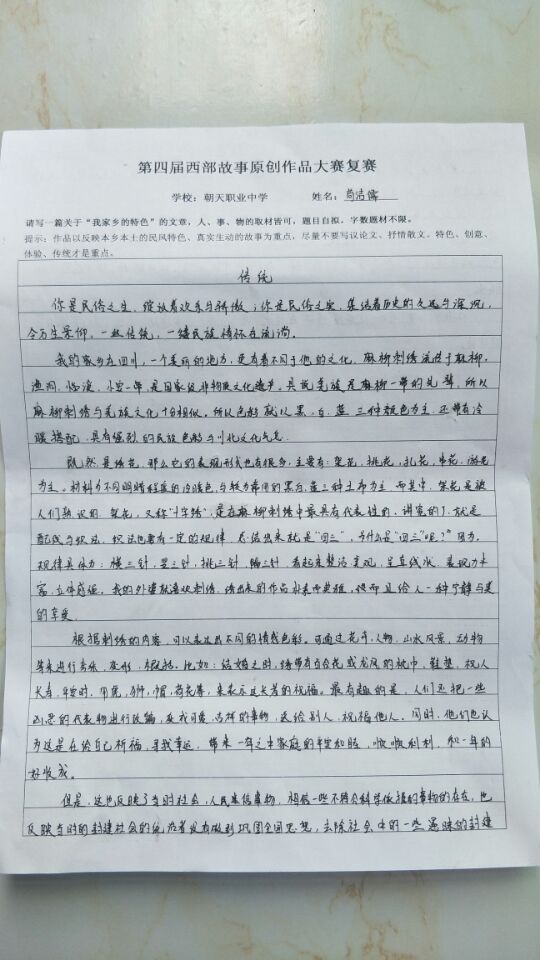 第四届西部故事原创作品大赛复赛
学校：朝天职业中学 姓名：
请写一篇关于“我家乡的特色”的文章，人、事、物的取材皆可，题目自拟，字数题材不限。
提示：作品以反映本乡本土的民风特色、真实生动的故事为重点，尽量不要写议论文、抒情散文。特色、创意、
体验、传统才是重点。
传统
你是民俗之生，绽放着欢乐与骄傲；你是民俗之实，集结着历史的久远与深沉，
令万生景仰。一丝传统，一缕民族情怀在流淌。
我的家乡在四川，一个美丽的地方，更有着不同于他的文化。麻柳刺绣流传于麻柳、
一带，是国家级非物质文化遗产。具说羌族是麻柳一带的先 所以
麻柳刺绣与羌族文化十分相似。所以色彩就以黑、白、蓝三种颜色为主，还带有冷
暖搭配，具有强烈的民族色彩与川北文化气息。
既然是绣花，那么它的表现形式也有很多，主要有：架花，挑花，扎花，串花，游花
为主。材料为不同明暗程度的冷暖色，与较为常用的黑、白、蓝三种土布为主。而其中，架花是被
人们熟识的，架花，又称“十字绣”，是在麻柳刺绣中最具有代表性的，讲究的，就是
配线与织法，织法也要有一定的规律，总结出来就是“四三”，为什么是“四三”呢？因为，
规律具体为：横三针，竖三针，挑三针，隔三针，看起来整洁美观，呈直线状，表现力丰
富，立体感强。我的外婆就喜欢刺绣，绣出来的作品朴素而典雅，从而且给人一种宁静与美
的享受。
根据刺绣的内容，可以表达出不同的情感色彩。可通过花卉，人物，山水风景，动物
等来进行夸张，变形，概括。比如：结婚之时，绣带有百合花或龙凤的枕巾，鞋垫，祝人
长寿，平安时，用龟，狮，帽，荷花等，来表示送长者的祝福。最有趣的是，人们还把一些
凶恶的代表物进行改编，变成可爱，吉祥的事物，送给别人，祝福他人。同时，他们也认
为这是在给自己祈福，寻找幸运，带来一年之中家庭的平安和睦，顺顺利利，和一年的
好收成。
但是，这也反映了当时社会，人民迷信事物，相信一些不符合科学依据的事物的存在，也
反映当时的封建社会的统治者没有做到巩固全国思想，去除社会中的一些愚昧的封建